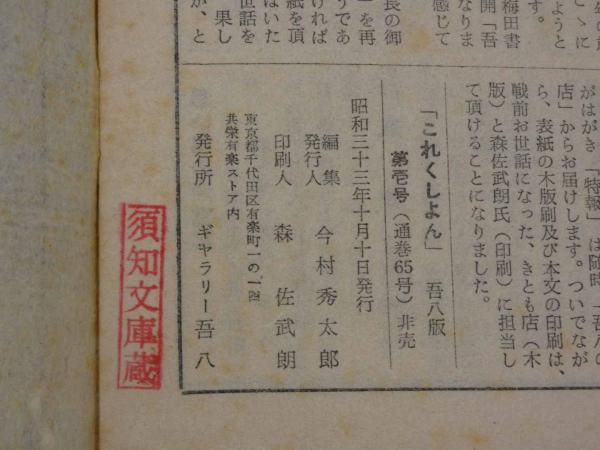 を再
うであ
ければ
紙を頂
はいた
世話を
果し
が、と
がはがき「特報」は随時「吾八の
店」からお届けします。ついでなが
ら、表紙の木版刷及び本文の印刷は、
戦前お世話になった、きとも店（木
版）と森佐武朗氏（印刷）に担当し
て頂けることになりました。
「これくしょん」 吾八版
第壱号（通巻65号）非売
昭和三十三年十月十日発行
編集
発行人 今村秀太郎
印刷人 森佐武朗
東京都千代田区有楽町一の一四
共栄有楽ストア内
発行所 ギャラリー吾八
須知文庫蔵